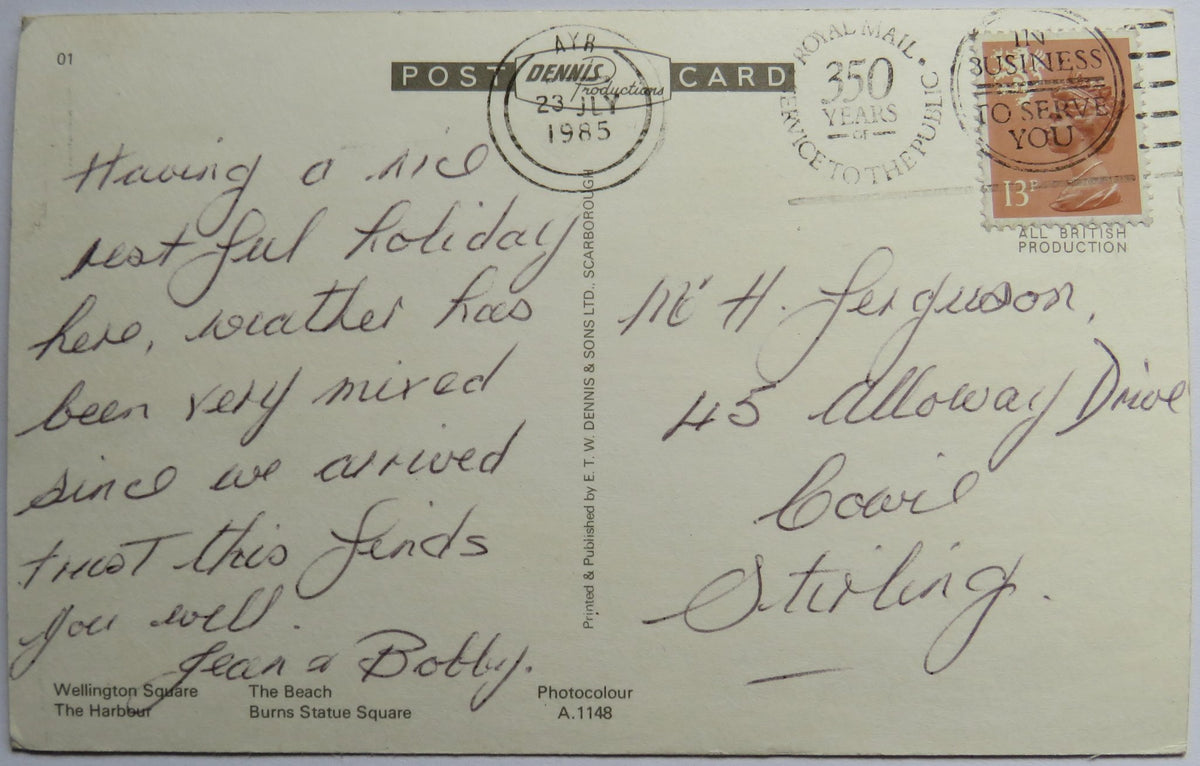 01
POST DENNIS Productions CARD
AYR
23 JLY
1985
ROYAL MAIL • SERVICE TO THE PUBLIC
350
YEARS
OF
IN
BUSINESS
TO SERVE
YOU
13P
ALL BRITISH
PRODUCTION
Having a nice
restful holiday
here, weather has
been very mixed
since we arrived
trust this finds
you well.
Jean & Bobby.
Printed & Published by E. T. W. DENNIS & SONS LTD., SCARBOROUGH
Mr H. Ferguson,
45 Alloway Drive
Cowie
Stirling.
Wellington Square The Beach Photocolour
The Harbour Burns Statue Square A.1148